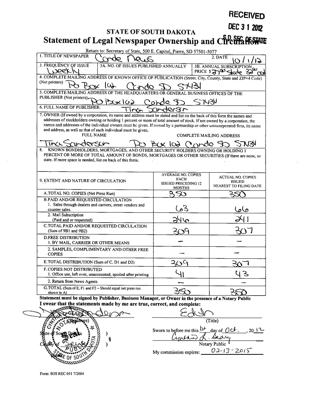 RECEIVED
DEC 31 2012
S.D. SEC. OF STATE
STATE OF SOUTH DAKOTA
Statement of Legal Newspaper Ownership and Circulation
Return to: Secretary of State, 500 E. Capitol, Pierre, SD 57501-5077
1. TITLE OF NEWSPAPER Conde News 2. DATE 10/1/12
3. FREQUENCY OF ISSUE weekly 3A. NO. OF ISSUES PUBLISHED ANNUALLY 3B. ANNUAL SUBSCRIPTION PRICE
4. COMPLETE MAILING ADDRESS OF KNOWN OFFICE OF PUBLICATION (Street, City, County, State and ZIP+4 Code)
(Not printers) Po Box 162 Conde SD 57434
5. COMPLETE MAILING ADDRESS OF THE HEADQUARTERS OR GENERAL BUSINESS OFFICES OF THE
PUBLISHER (Not printers) Po Box 162 Conde SD 57434
6. FULL NAME OF PUBLISHER: Tina Sanderson
7. OWNER (If owned by a corporation, its name and address must be stated and list on the back of this form the names and
addresses of stockholders owning or holding 1 percent or more of total amount of stock. If not owned by a corporation, the
names and addresses of the individual owners must be given. If owned by a partnership or other unincorporated firm, its name
and address, as well as that of each individual must be given.
FULL NAME COMPLETE MAILING ADDRESS
Tina Sanderson Po Box 162 Conde SD 57434
8. KNOWN BONDHOLDERS, MORTGAGES, AND OTHER SECURITY HOLDERS OWNING OR HOLDING 1
PERCENT OR MORE OF TOTAL AMOUNT OF BONDS, MORTGAGES OR OTHER SECURITIES (If there are none, so
state. If more space is needed, list on back of this form.
9. EXTENT AND NATURE OF CIRCULATION
AVERAGE NO. COPIES
EACH
ISSUED PRECEDING 12
MONTHS
ACTUAL NO. COPIES
ISSUED
NEAREST TO FILING DATE
A. TOTAL NO. COPIES (Net Press Run) 350 350
B. PAID AND/OR REQUESTED CIRCULATION
1. Sales through dealers and carriers, street vendors and
counter sales. 63 66
2. Mail Subscription
(Paid and or requested) 246 241
C. TOTAL PAID AND/OR REQUESTED CIRCULATION
(Sum of 9B1 and 9B2) 309 307
D. FREE DISTRIBUTION
1. BY MAIL, CARRIER OR OTHER MEANS —
2. SAMPLES, COMPLIMENTARY AND OTHER FREE
COPIES — —
E. TOTAL DISTRIBUTION (Sum of C, D1 and D2) 309 307
F. COPIES NOT DISTRIBUTED
1. Office use, left over, unaccounted, spoiled after printing 41 43
2. Return from News Agents — —
G. TOTAL (Sum of E, F1 and F2 – Should equal net press run
shown in A) 350 350
Statement must be signed by Publisher, Business Manager, or Owner in the presence of a Notary Public
I swear that the statements made by me are true, correct, and complete:
(Title)
Sworn to before me this 1st day of Oct. 20 12
Notary Public
My commission expires: 02-13-2015
Form: SOS REC 051 7/2004